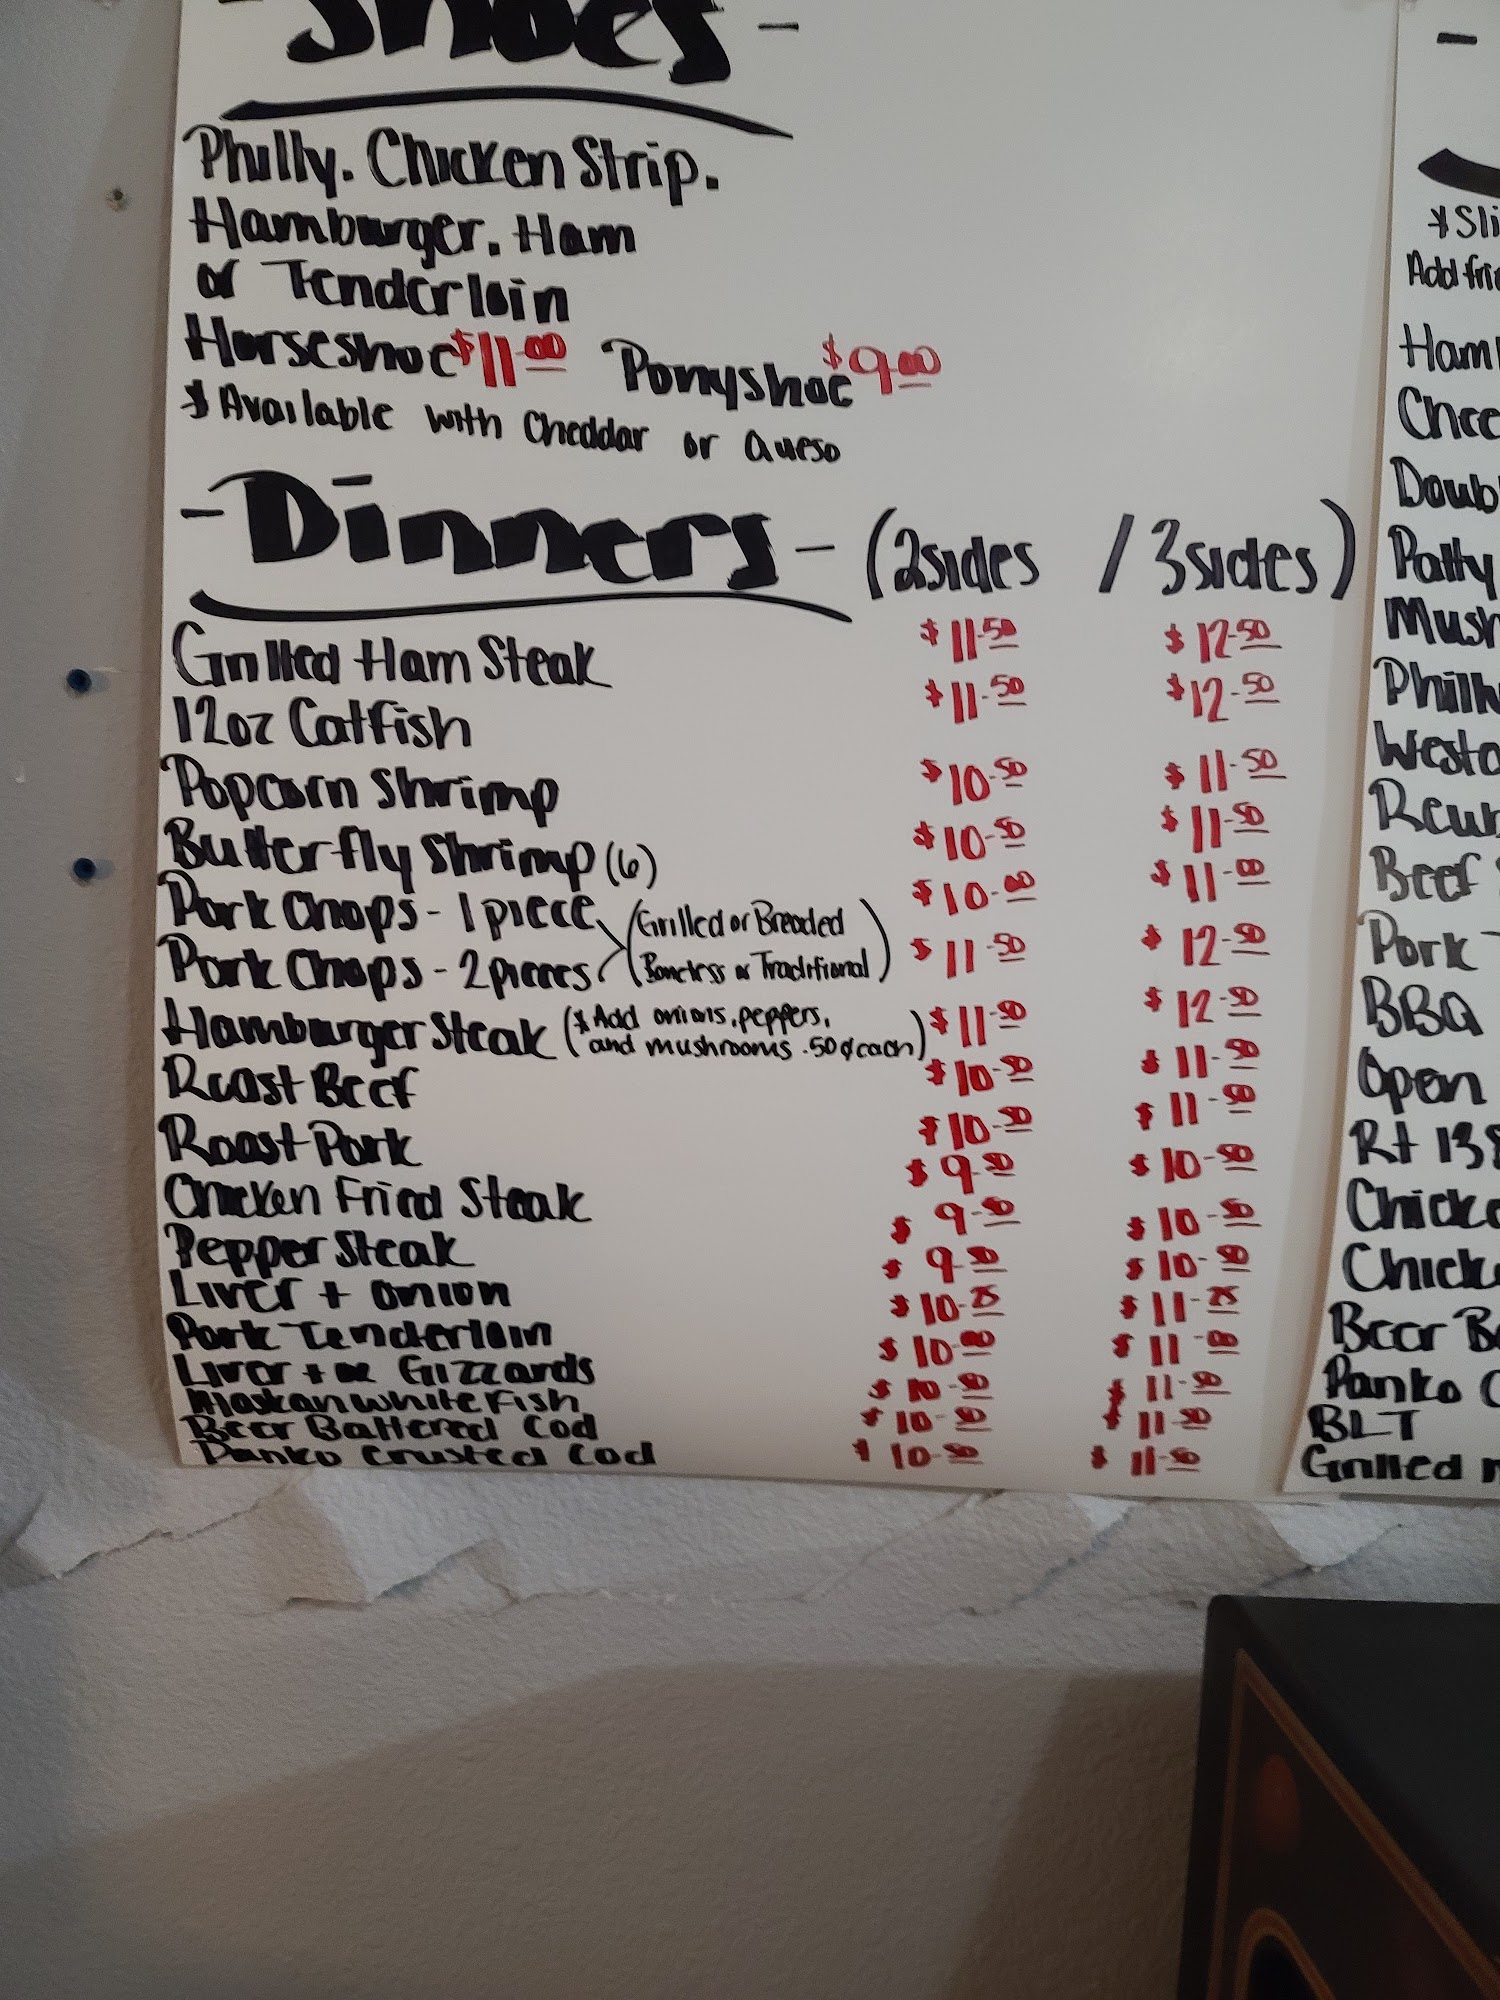 - Shoes -
Philly, Chicken Strip,
Hamburger, Ham
or Tenderloin
Horseshoe $11.00 Ponyshoe $9.00
* Available with Cheddar or Queso
- Dinners - (2sides / 3sides)
Grilled Ham Steak $11.50 $12.50
12oz Catfish $11.50 $12.50
Popcorn Shrimp $10.50 $11.50
Butterfly Shrimp (6) $10.50 $11.50
Pork Chops - 1 piece (Grilled or Breaded $10.00 $11.00
Pork Chops - 2 pieces Boneless or Traditional) $11.50 $12.50
Hamburger Steak (*Add onions, peppers, $11.50 $12.50
and mushrooms .50¢ each)
Roast Beef $10.50 $11.50
Roast Pork $10.50 $11.50
Chicken Fried Steak $9.50 $10.50
Pepper Steak $9.50 $10.50
Liver + Onion $9.50 $10.50
Pork Tenderloin $10.25 $11.25
Liver + or Gizzards $10.00 $11.00
Alaskan White Fish $10.50 $11.50
Beer Battered Cod $10.50 $11.50
Panko Crusted Cod $10.50 $11.50
-
*Sli
Add frie
Ham
Chee
Doub
Patty
Mush
Philly
Weste
Reub
Beef
Pork T
BBQ
Open
Rt 138
Chicke
Chicke
Beer Ba
Panko C
BLT
Grilled